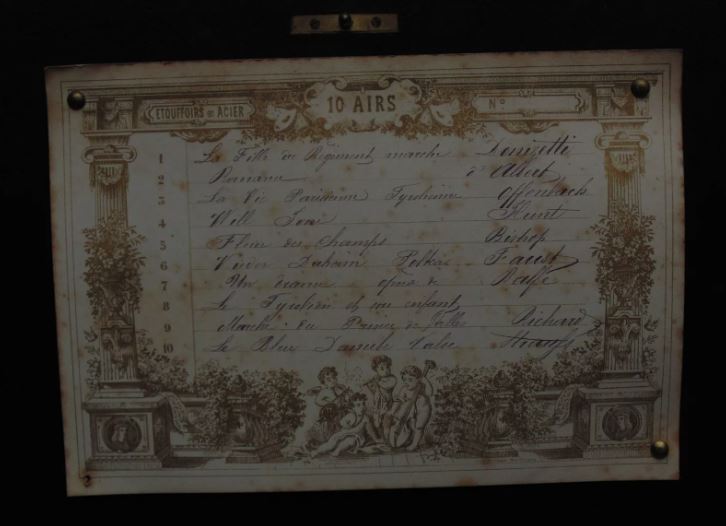 ETOUFFOIRS EN ACIER
10 AIRS
N°
1 La Fille du Régiment marche Donizetti
2 Romance d' Abt
3 La Vie Parisienne Tyrolienne Offenbach
4 Nell
5 Fleur des Champs Bishop
6 Polka Faust
7 Un drame Balfe
8 Le Tyrolien et son enfant
9 Marche du Prince de Galles Richard
10 Le Bleu Danube Valse Strauss